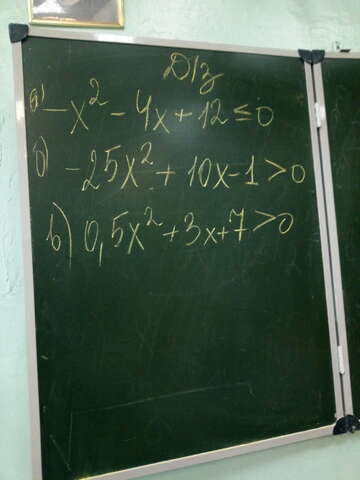 Д/з
а) -x² - 4x + 12 ≤ 0
б) -25x² + 10x - 1 > 0
в) 0,5x² + 3x + 7 > 0